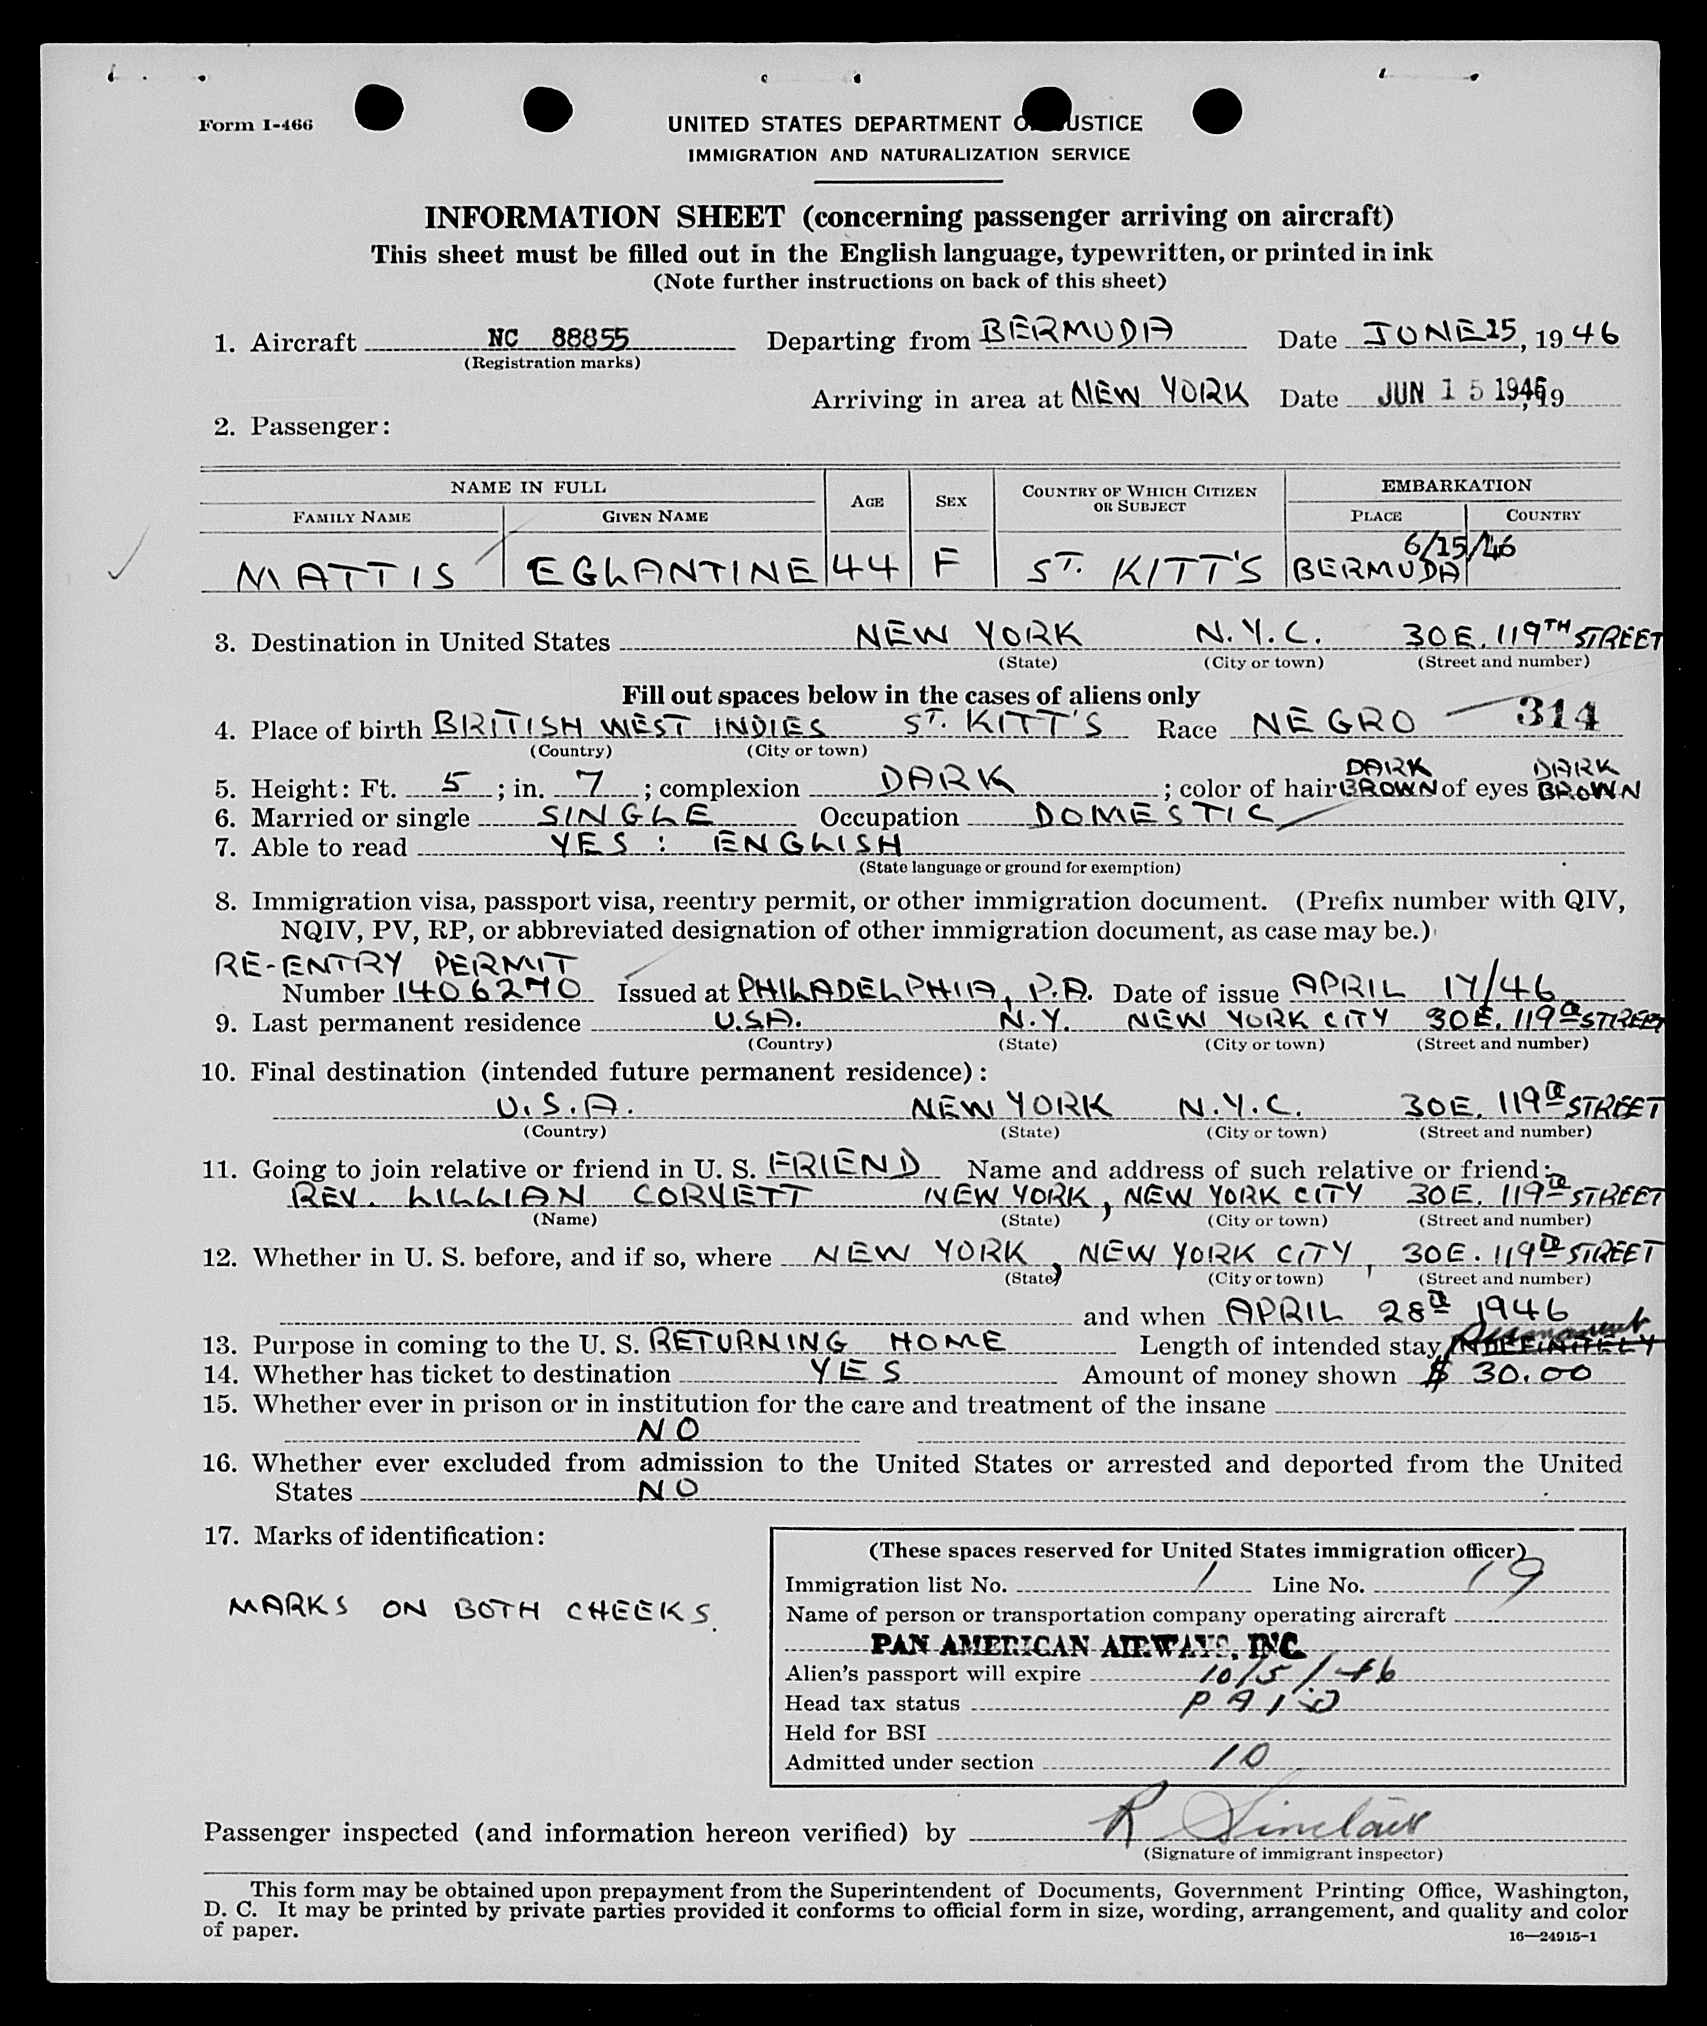 Form I-466
UNITED STATES DEPARTMENT OF JUSTICE
IMMIGRATION AND NATURALIZATION SERVICE
INFORMATION SHEET (concerning passenger arriving on aircraft)
This sheet must be filled out in the English language, typewritten, or printed in ink
(Note further instructions on back of this sheet)
1. Aircraft NC 88855 Departing from BERMUDA Date JUNE 15, 1946
(Registration marks)
Arriving in area at NEW YORK Date JUN 15 1946, 19
2. Passenger:
NAME IN FULL AGE SEX COUNTRY OF WHICH CITIZEN OR SUBJECT EMBARKATION
FAMILY NAME GIVEN NAME PLACE COUNTRY
6/15/46
MATTIS EGLANTINE 44 F ST. KITT'S BERMUDA
3. Destination in United States NEW YORK N.Y.C. 30 E. 119TH STREET
(State) (City or town) (Street and number)
Fill out spaces below in the cases of aliens only
4. Place of birth BRITISH WEST INDIES ST. KITT'S Race NEGRO 314
(Country) (City or town)
5. Height: Ft. 5; in. 7; complexion DARK; color of hair DARK BROWN of eyes DARK BROWN
6. Married or single SINGLE Occupation DOMESTIC
7. Able to read YES: ENGLISH
(State language or ground for exemption)
8. Immigration visa, passport visa, reentry permit, or other immigration document. (Prefix number with QIV,
NQIV, PV, RP, or abbreviated designation of other immigration document, as case may be.)
RE-ENTRY PERMIT
Number 1406270 Issued at PHILADELPHIA, P.A. Date of issue APRIL 17/46
9. Last permanent residence U.S.A. N.Y. NEW YORK CITY 30 E. 119th STREET
(Country) (State) (City or town) (Street and number)
10. Final destination (intended future permanent residence):
U.S.A. NEW YORK N.Y.C. 30 E. 119th STREET
(Country) (State) (City or town) (Street and number)
11. Going to join relative or friend in U. S. FRIEND Name and address of such relative or friend:
REV. LILLIAN CORVETT NEW YORK, NEW YORK CITY 30 E. 119th STREET
(Name) (State) (City or town) (Street and number)
12. Whether in U. S. before, and if so, where NEW YORK, NEW YORK CITY, 30 E. 119th STREET
(State) (City or town) (Street and number)
and when APRIL 28th 1946
13. Purpose in coming to the U. S. RETURNING HOME Length of intended stay INDEFINITELY Permanent
14. Whether has ticket to destination YES Amount of money shown $ 30.00
15. Whether ever in prison or in institution for the care and treatment of the insane
NO
16. Whether ever excluded from admission to the United States or arrested and deported from the United
States NO
17. Marks of identification:
MARKS ON BOTH CHEEKS.
(These spaces reserved for United States immigration officer)
Immigration list No. 1 Line No. 19
Name of person or transportation company operating aircraft
PAN AMERICAN AIRWAYS, INC.
Alien's passport will expire 10/5/46
Head tax status PAID
Held for BSI
Admitted under section 10
Passenger inspected (and information hereon verified) by R Sinclair
(Signature of immigrant inspector)
This form may be obtained upon prepayment from the Superintendent of Documents, Government Printing Office, Washington,
D. C. It may be printed by private parties provided it conforms to official form in size, wording, arrangement, and quality and color
of paper.
16—24915-1